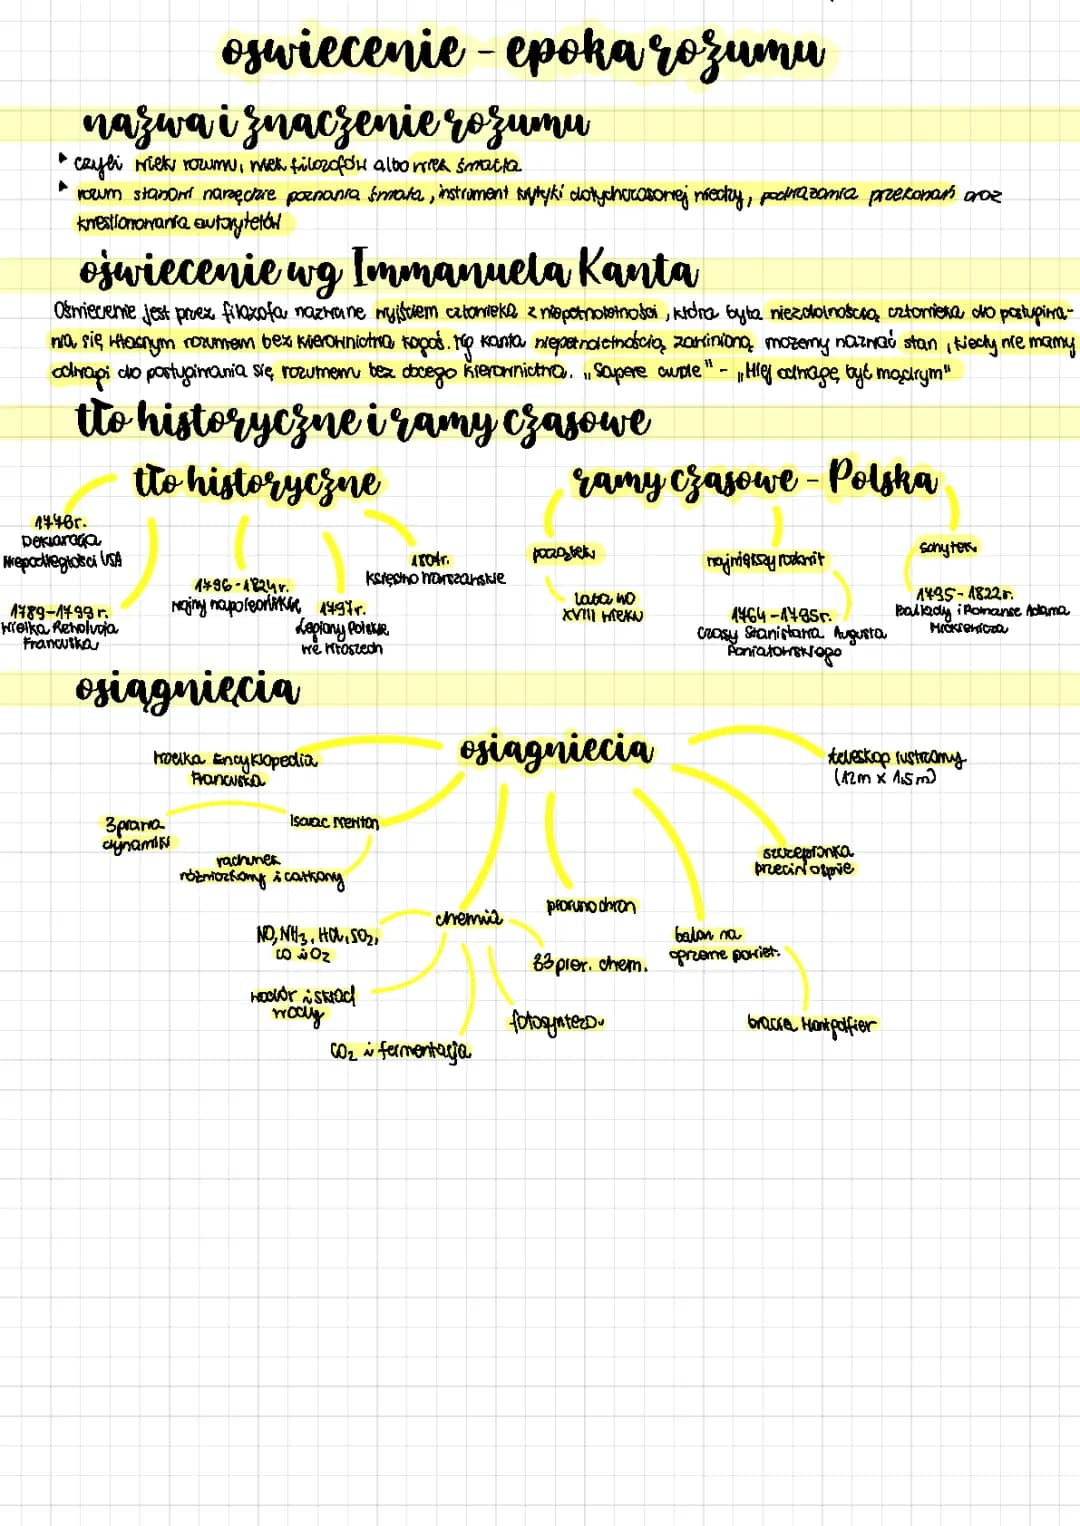 oswiecenie - epoka rozumu
nazwa i znaczenie rozumu
czyli wieki rozumu, wiek filozofów albo wiek światła
rozum stanowi narzędzie poznania świata, instrument krytyki dotychczasowej wiedzy, podważania przekonań oraz
kwestionowania autorytetów
oświecenie wg Immanuela Kanta
Oświecenie jest przez filozofa nazwane wyjściem człowieka z niepełnoletności, która była niezdolnością człowieka do posługiwa-
nia się własnym rozumem bez kierownictwa kogoś. Wg Kanta niepełnoletnością zawinioną możemy nazwać stan, kiedy nie mamy
odwagi do posługiwania się rozumem bez obcego kierownictwa. "Sapere aude" - "Miej odwagę być mądrym"
tło historyczne i ramy czasowe
tło historyczne
1776r.
Deklaracja
Niepodległości USA
1789-1799r.
Wielka Rewolucja
Francuska
1796-1824r.
Wojny napoleońskie
1797r.
Legiony Polskie
we Włoszech
1807r.
Księstwo Warszawskie
ramy czasowe - Polska
początek
lata 40
XVIII wieku
największy rozkwit
1764-1795r.
Czasy Stanisława Augusta
Poniatowskiego
schyłek
1795-1822r.
Ballady i Romanse Adama
Mickiewicza
osiągnięcia
osiągniecia
Wielka Encyklopedia
Francuska
Isaac Newton
3 prawa
dynamiki
rachunek
różniczkowy i całkowy
chemia
NO, NH3, HCl, SO2,
CO i O2
wodór i skład
wody
CO2 i fermentacja
fotosynteza
33 pier. chem.
piorunochron
balon na
ogrzane powiet.
bracia Montgolfier
szczepionka
przeciw ospie
teleskop lustrzany
(12m x 1,5m)